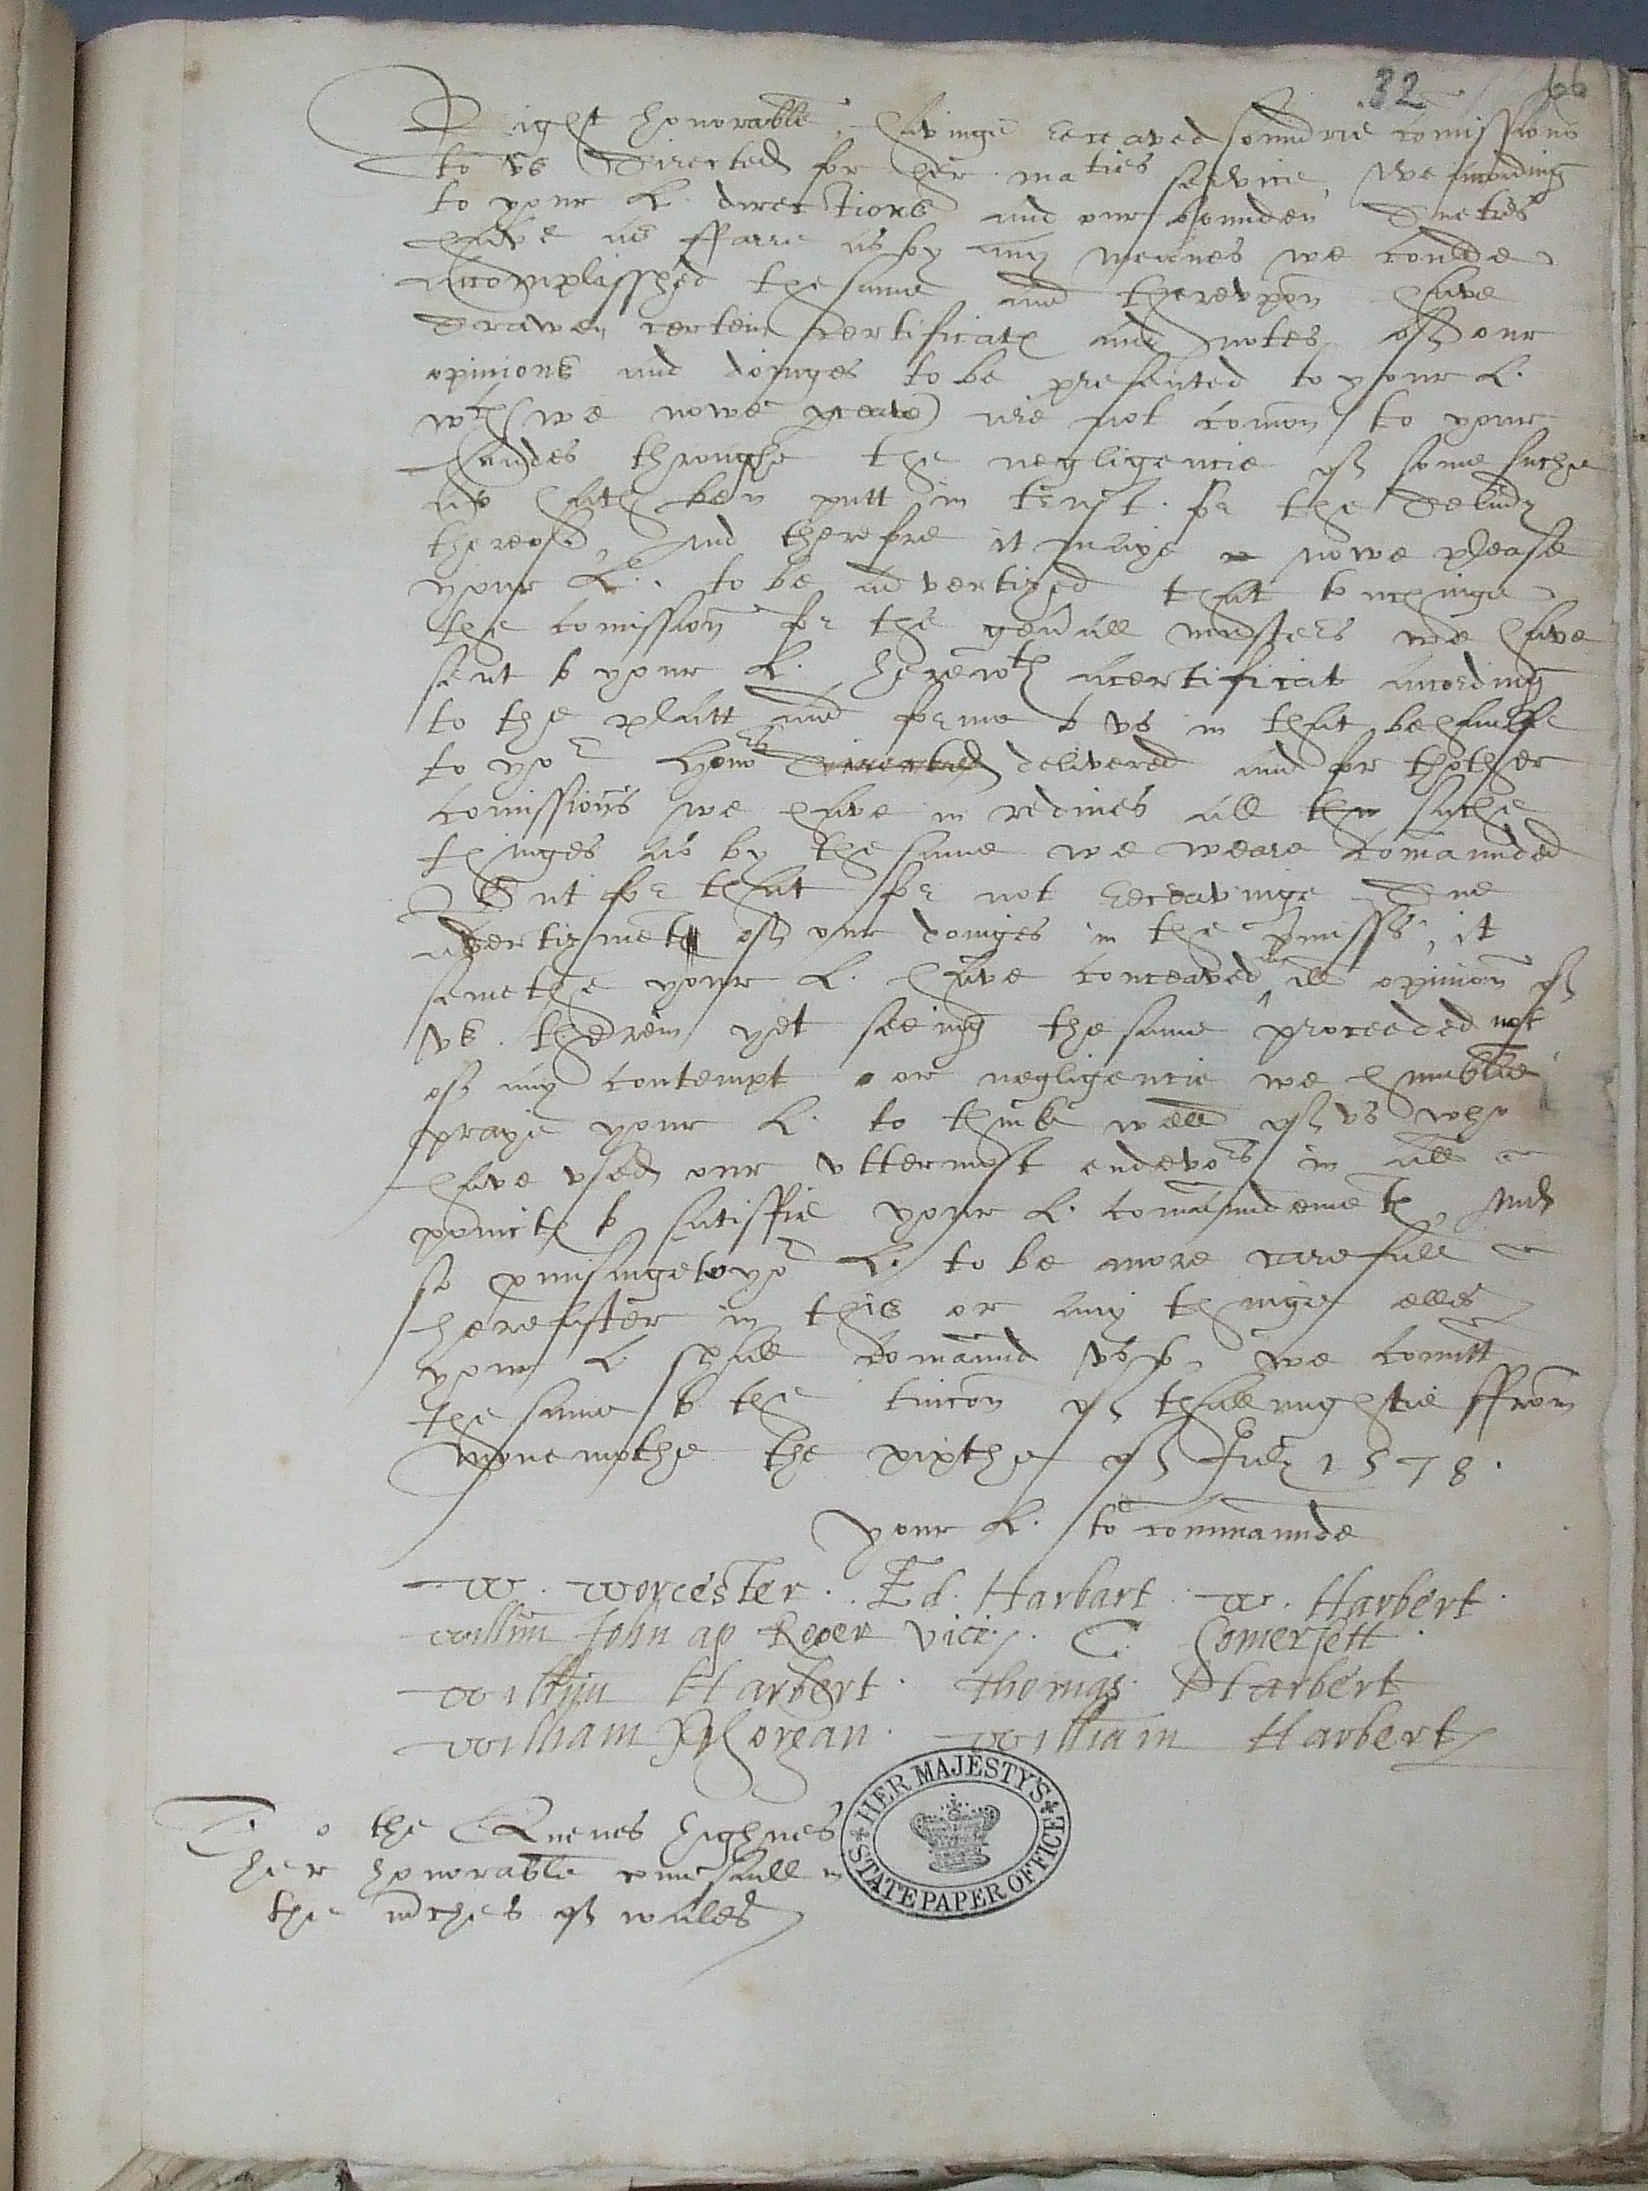 32 66
Right honorable, havinge receaved soundrie comissions
to vs directed for her maties service, we accordinge
to your L. directions and our bounden dueties
have as ffarre as by any meanes we coulde
accomplisshed the same and therevpon have
drawen certein certificates and notes of our
opinions and doinges to be presented to your L.
wch (we nowe p'ceave) are not comon to your
handes throughe the negligencie of some suche
as hath ben putt in trust for the delivdy
thereof, And therefore it maye nowe please
your L. to be advertized that touchinge
the comission for the gen'all musters we have
sent to your L. herewth a certificat accordinge
to the platt and forme to vs in that behaulfe
to yor honors directed delivered and for thother
comissions we have in redines all the suche
thinges as by the same we weare comaunded
But for that for not receavinge due
advertizmentes of our doinges in the p'misses, it
semethe your L. have conceaved ill opinion of
vs therein yet seeing the same proceeded not
of any contempt or negligencie we humblie
praye your L. to think well of vs who
have vsed our vttermost endevors in all
pointes to satisffie your L. comaundementes, And
so p'misinge to yor L. to be more carefull
hereafter in this or any thinge elles
your L. shall comaund vs to, we comitt
the same to the tuicon of thallmightie ffrom
Monemothe the vixthe of July 1578.
your L. to commaunde
W. Worcester. Ed. Harbart. W. Harbert.
Willim John ap Roger vic. C. Somersett.
Willim Harbert. Thomas Harbert
William Morgan. William Harbert
To the Quenes highnes
her honorable counsaill in
the m'ches of wales
HER MAJESTY'S
STATE PAPER OFFICE